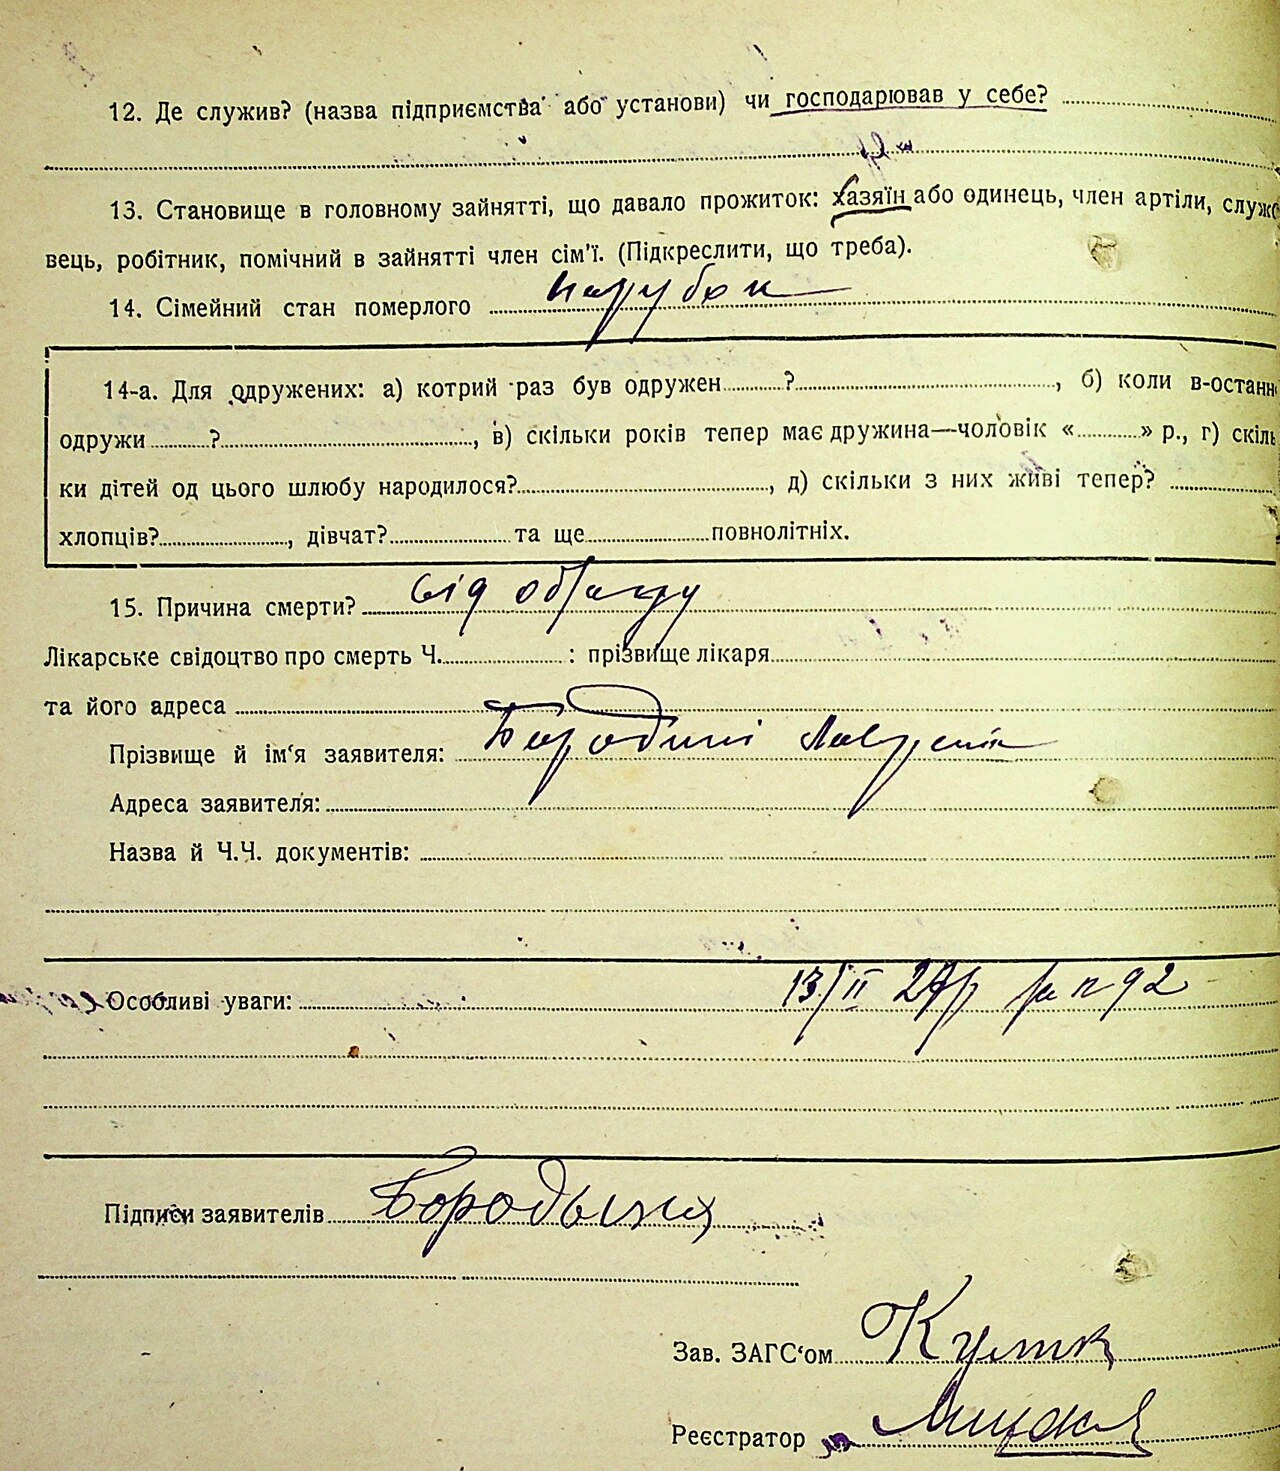 12. Де служив? (назва підприємства або установи) чи господарював у себе?
13. Становище в головному зайнятті, що давало прожиток: хазяїн або одинець, член артіли, служо
вець, робітник, помічний в зайнятті член сім'ї. (Підкреслити, що треба).
14. Сімейний стан померлого парубок
14-а. Для одружених: а) котрий раз був одружен ?, б) коли в-останн
одружи ?, в) скільки років тепер має дружина—чоловік « » р., г) скіль
ки дітей од цього шлюбу народилося?, д) скільки з них живі тепер?
хлопців?, дівчат? та ще повнолітніх.
15. Причина смерти? від
Лікарське свідоцтво про смерть Ч. : прізвище лікаря
та його адреса
Прізвище й ім'я заявителя:
Адреса заявителя:
Назва й Ч.Ч. документів:
Особливі уваги: 13/II
Підписи заявителів
Зав. ЗАГС'ом
Реєстратор